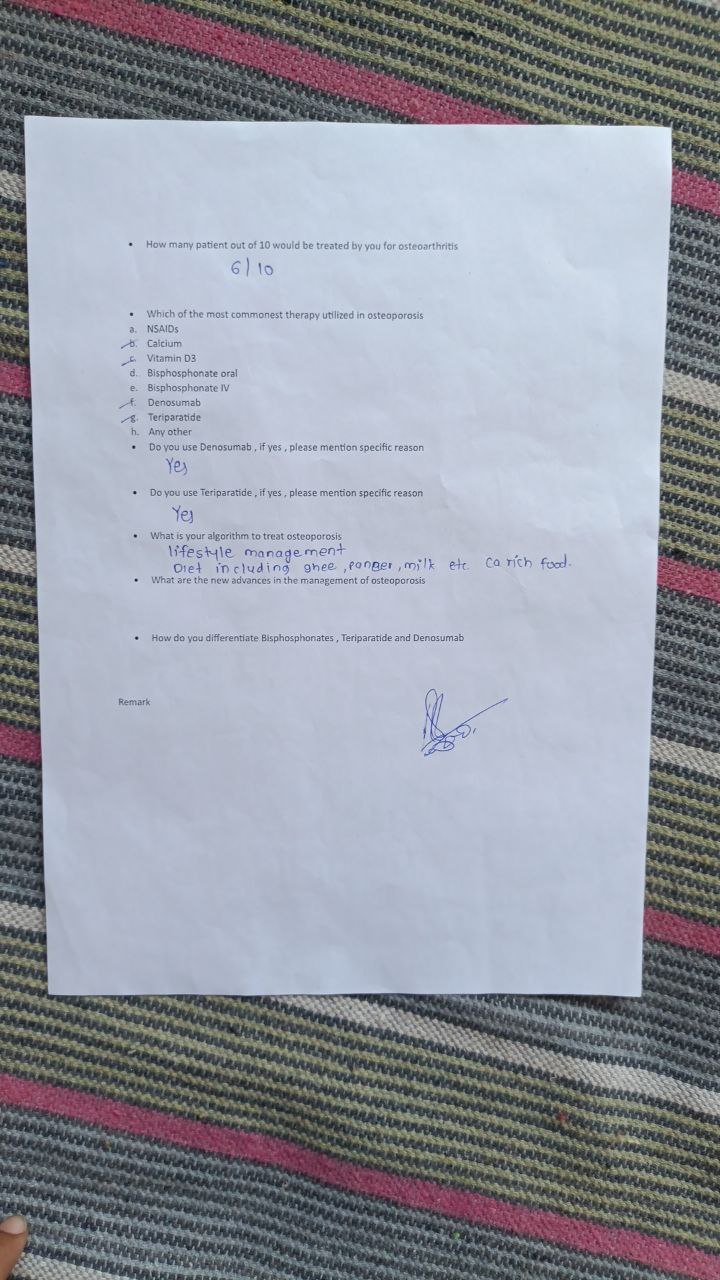 • How many patient out of 10 would be treated by you for osteoarthritis
6/10
• Which of the most commonest therapy utilized in osteoporosis
a. NSAIDs
b. Calcium
c. Vitamin D3
d. Bisphosphonate oral
e. Bisphosphonate IV
f. Denosumab
g. Teriparatide
h. Any other
• Do you use Denosumab , if yes , please mention specific reason
Yes
• Do you use Teriparatide , if yes , please mention specific reason
Yes
• What is your algorithm to treat osteoporosis
lifestyle management
Diet including ghee , paneer , milk etc. Ca rich food.
• What are the new advances in the management of osteoporosis
• How do you differentiate Bisphosphonates , Teriparatide and Denosumab
Remark